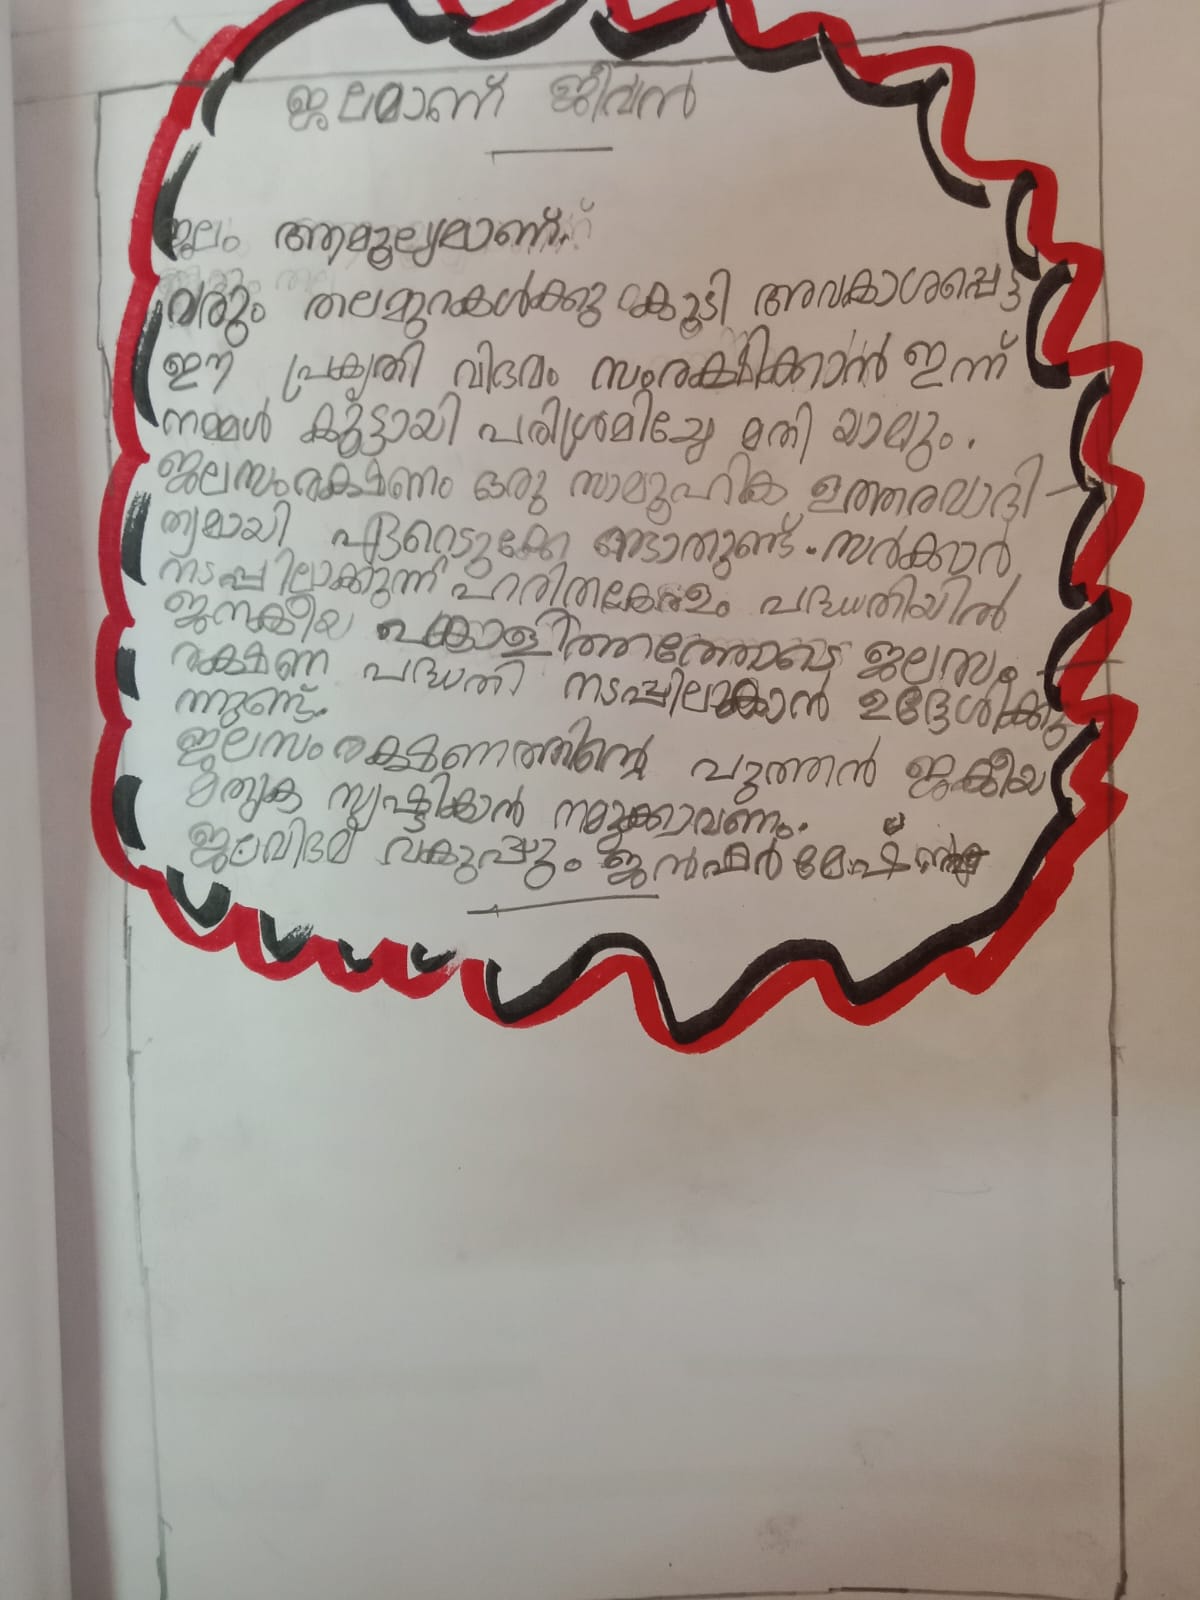 ജലമാണ് ജീവൻ
ജലം ആമൂല്യമാണ്.
വരും തലമുറകൾക്കു കൂടി അവകാശപ്പെട്ട
ഈ പ്രകൃതി വിഭവം സംരക്ഷിക്കാൻ ഇന്ന്
നമ്മൾ കൂട്ടായി പരിശ്രമിച്ചേ മതി യാലും.
ജലസംരക്ഷണം ഒരു സാമൂഹിക ഉത്തരവാദി-
ത്വമായി ഏറ്റെടുക്കേ ണ്ടാതുണ്ട്. സർക്കാർ
നടപ്പിലാക്കുന്ന ഹരിതകേരളം പദ്ധതിയിൽ
ജനകീയ പങ്കാളിത്തത്തോടെ ജലസം -
രക്ഷണ പദ്ധതി നടപ്പിലാക്കാൻ ഉദ്ദേശിക്കു
ന്നുണ്ട്.
ജലസംരക്ഷണത്തിന്റെ പുത്തൻ ജകീയ
മതൃക സൃഷ്ടികാൻ നമുക്കാവണം.
ജലവിഭവ വകുപ്പും